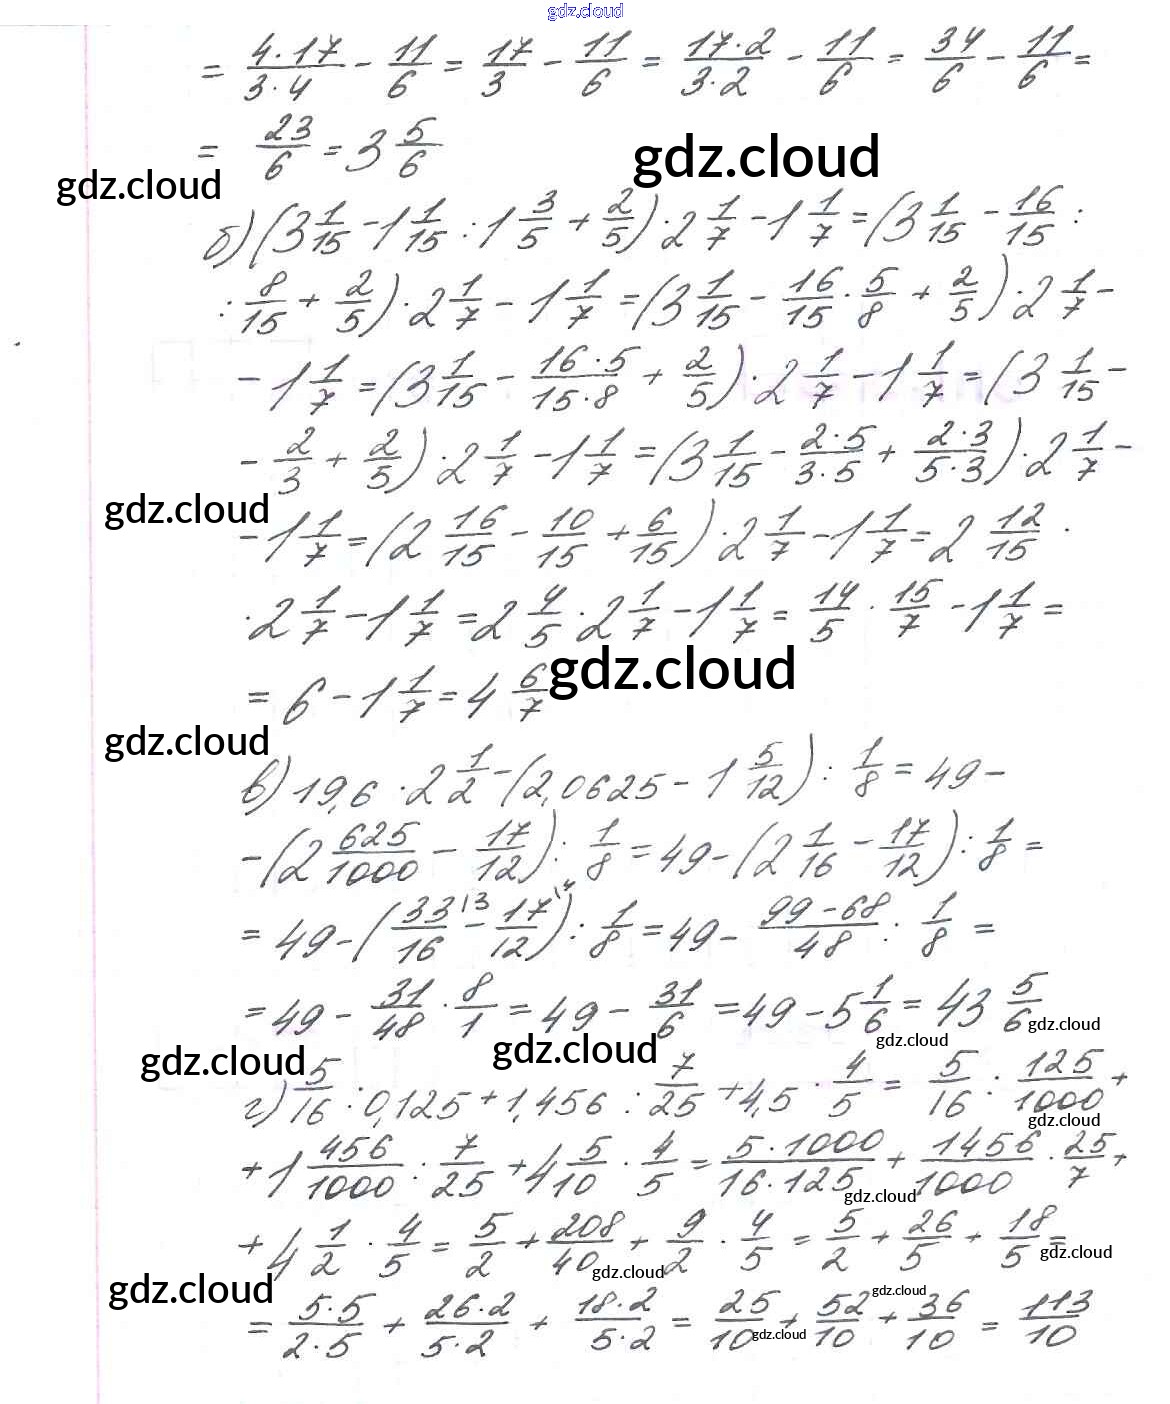 gdz.cloud
= 4·17/3·4 - 11/6 = 17/3 - 11/6 = 17·2/3·2 - 11/6 = 34/6 - 11/6 =
= 23/6 = 3 5/6
gdz.cloud
gdz.cloud
б) (3 1/15 - 1 1/15 : 1 3/5 + 2/5) · 2 1/7 - 1 1/7 = (3 1/15 - 16/15 :
: 8/15 + 2/5) · 2 1/7 - 1 1/7 = (3 1/15 - 16/15 · 5/8 + 2/5) · 2 1/7 -
- 1 1/7 = (3 1/15 - 16·5/15·8 + 2/5) · 2 1/7 - 1 1/7 = (3 1/15 -
- 2/3 + 2/5) · 2 1/7 - 1 1/7 = (3 1/15 - 2·5/3·5 + 2·3/5·3) · 2 1/7 -
gdz.cloud
- 1 1/7 = (2 16/15 - 10/15 + 6/15) · 2 1/7 - 1 1/7 = 2 12/15 ·
· 2 1/7 - 1 1/7 = 2 4/5 · 2 1/7 - 1 1/7 = 14/5 · 15/7 - 1 1/7 =
= 6 - 1 1/7 = 4 6/7
gdz.cloud
gdz.cloud
в) 19,6 · 2 1/2 - (2,0625 - 1 5/12) : 1/8 = 49 -
- (2 625/1000 - 17/12) : 1/8 = 49 - (2 1/16 - 17/12) : 1/8 =
= 49 - (33/16 \3 - 17/12 \4) : 1/8 = 49 - 99-68/48 : 1/8 =
= 49 - 31/48 · 8/1 = 49 - 31/6 = 49 - 5 1/6 = 43 5/6
gdz.cloud
gdz.cloud
gdz.cloud
gdz.cloud
г) 5/16 : 0,125 + 1,456 : 7/25 + 4,5 · 4/5 = 5/16 : 125/1000 +
gdz.cloud
+ 1 456/1000 : 7/25 + 4 5/10 · 4/5 = 5·1000/16·125 + 1456/1000 · 25/7 +
gdz.cloud
+ 4 1/2 · 4/5 = 5/2 + 208/40 + 9/2 · 4/5 = 5/2 + 26/5 + 18/5 =
gdz.cloud
gdz.cloud
gdz.cloud
gdz.cloud
= 5·5/2·5 + 26·2/5·2 + 18·2/5·2 = 25/10 + 52/10 + 36/10 = 113/10
gdz.cloud